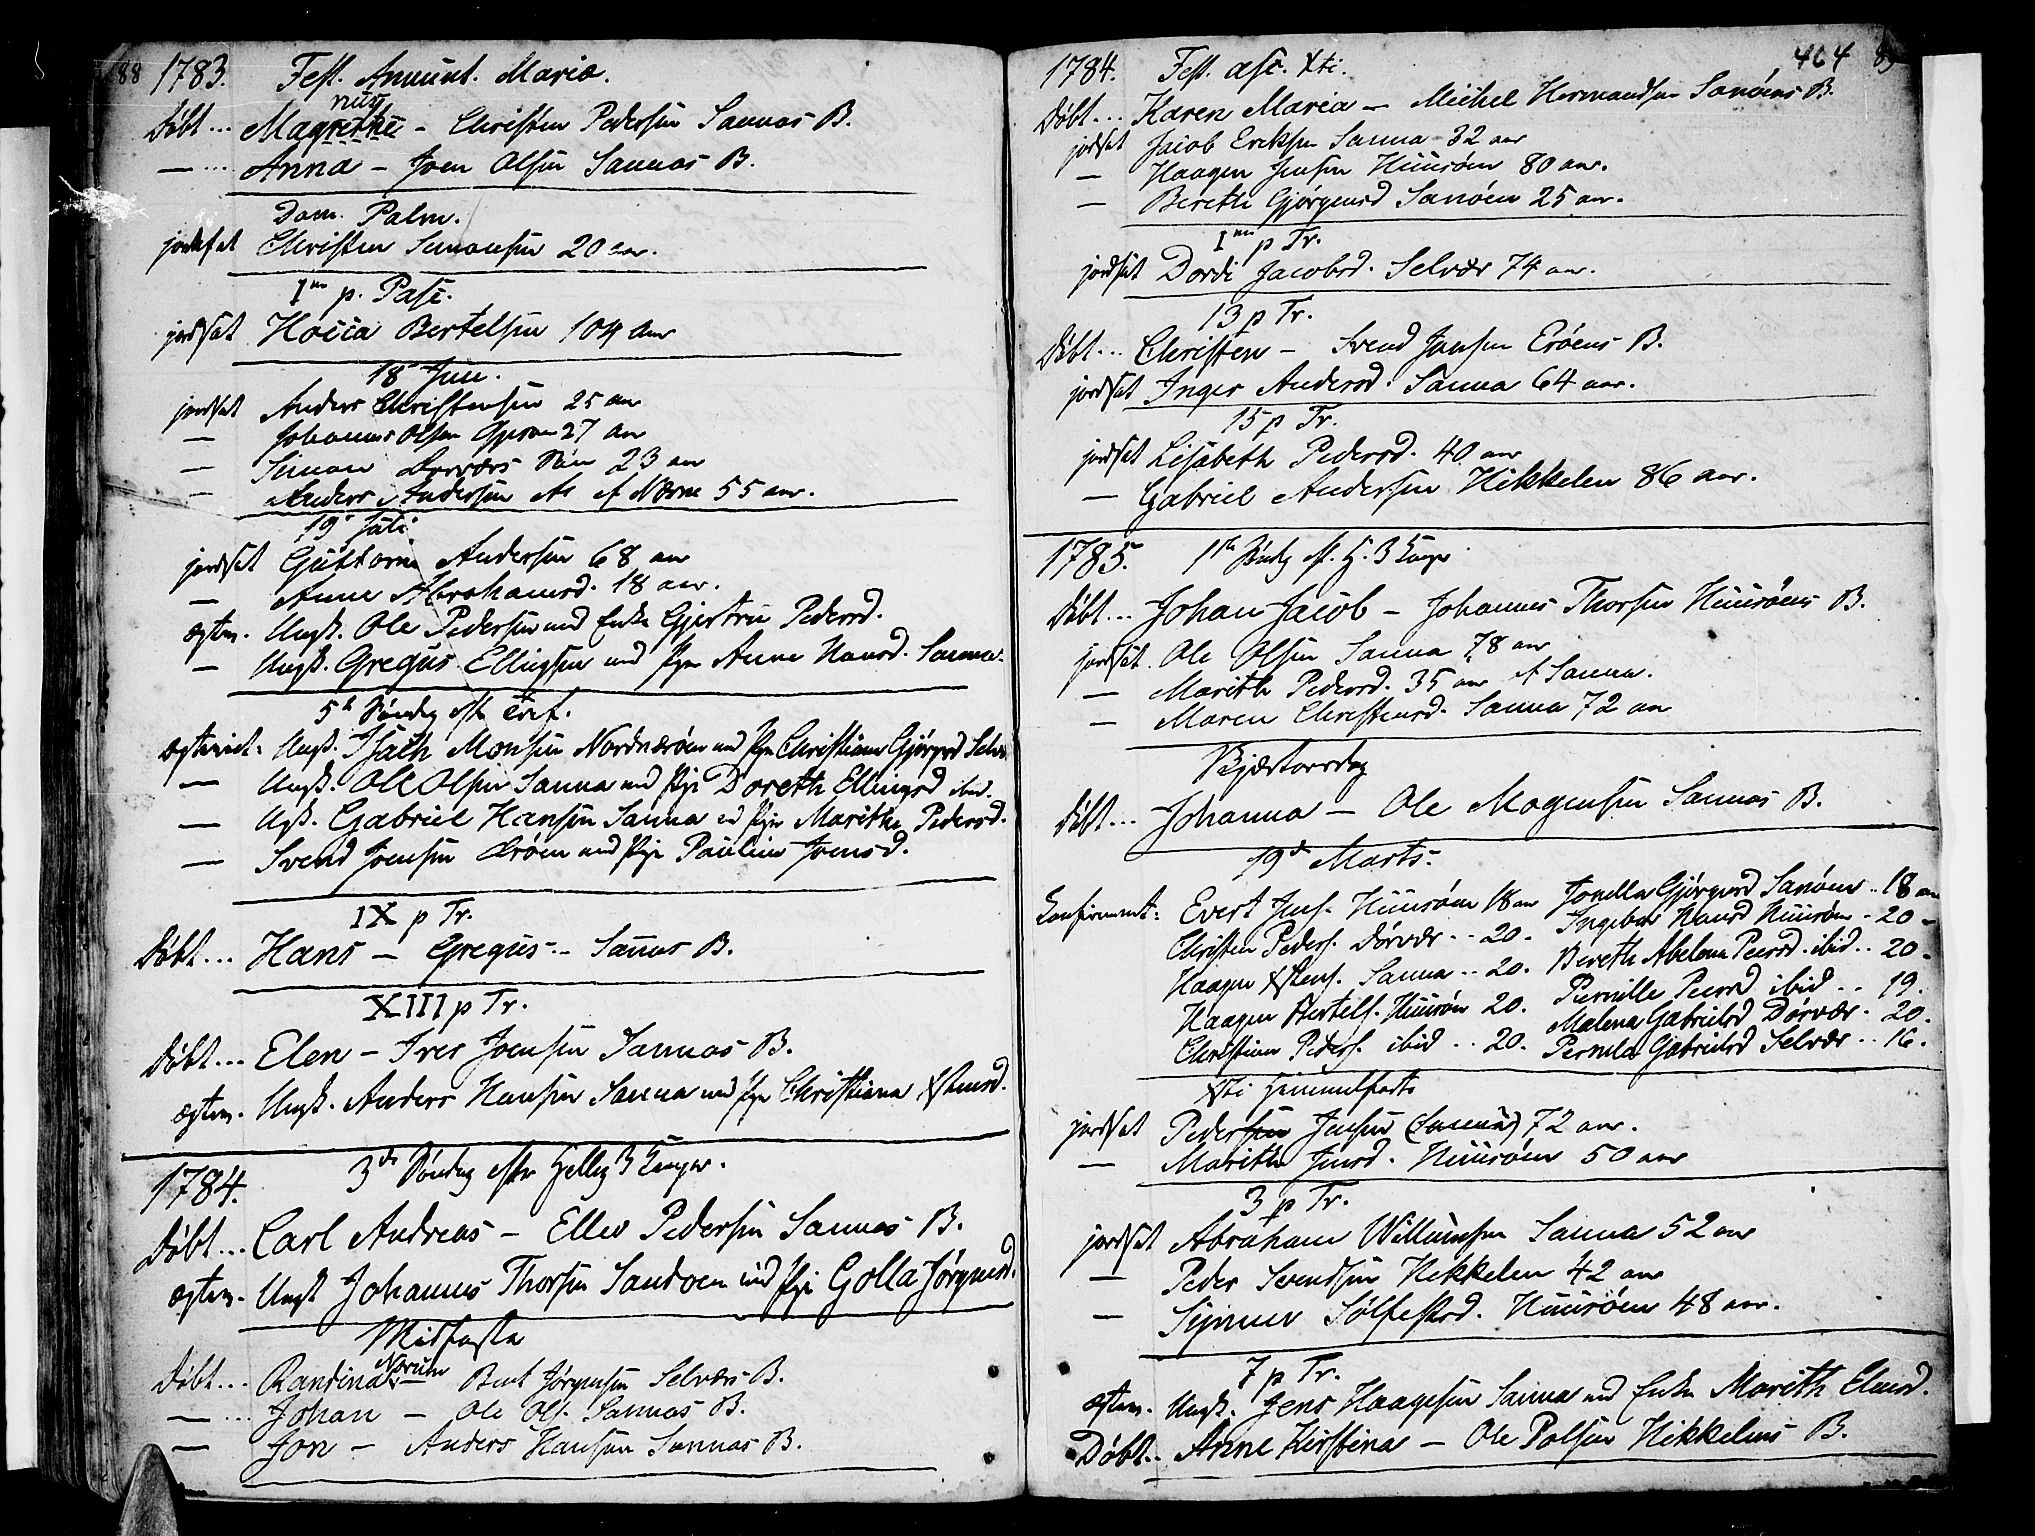 88 1783. Fest. Anunt. Mariæ.
nus
Døbt... Magrethe - Christen Pedersen Sannas B.
— ... Anna - Joen Olsen Sannas B.
Dom. Palm.
jordsat Christen Simonsen 20 aar.
1ma p. Pasc.
jordsat Hocca Bertelsen 104 aar
18de Jun.
jordsat Anders Christensen 25 aar
— Johannes Olsen 27 aar
— Simon Søn 23 aar
— Anders Andersen Nærøe 55 aar.
19de Juli
jordsat Guttorm Andersen 68 aar
— Anne Abrahamsd. 18 aar.
Ægtev. Ungk. Ole Pedersen med Enke Gjertru Pedersd.
— Ungk. Gregus Ellingsen med Pige Anne Hansd. Sanna.
5te Søndag eft. Tref.
Ægteviet. Ungk. Isach Monsen Nordnærøen med Pige Christiane Gjørgesd Selv.
— Ungk. Ole Olsen Sanna med Pige Doreth Ellingsd ibid.
— Ungk. Gabriel Hansen Sanna med Pige Marithe Pedersd.
— Svend Joensen Erøen med Pige Pauline Joensd.
IX p Tr.
Døbt... Hans - Gregus - - Sannas B.
XIII p Tr.
Døbt... Elen - Iver Joensen Sannas B.
Ægtev. Ungk. Anders Hansen Sanna med Pige Christiana Xstensd.
1784. 3de Søndag efter Hellig 3 Konger.
Døbt... Carl Andreas - Ellev Pedersen Sannas B.
Ægtev. Ungk Johannes Thorsen Sandøen med Pige Golla Jørgensd.
Midfaste
Norum
Døbt... Randina - Bent Jørgensen Selværs B.
— ... Johan - Ole Ols. Sannas B.
— Jon - Anders Hansen Sannas B.
464 89
1784. Fest. asc. Xti.
Døbt... Karen Maria - Michel Hermandsen Sanøens B.
jordsat Jacob Eriksen Sanna 32 aar
— Haagen Jensen Huusøen 80 aar.
— Berethe Gjørgensd Sanøen 25 aar.
1ma p Tr.
jordsat Dordi Jacobsd. Selvær 74 aar.
13 p Tr.
Døbt... Christen - Svend Jonsen Erøens B.
jordsat Inger Andersd. Sanna 64 aar.
15 p Tr.
jordsat Lisabeth Pedersd. 40 aar
— Gabriel Andersen Hikkelen 86 aar.
1785. 1ste Søndg eft. H. 3 Konger
Døbt... Johan Jacob - Johannes Thorsen Huusøens B.
jordsat. Ole Olsen Sanna 78 aar
— Marith Pedersd. 35 aar Sanna.
— Maren Christensd. Sanna 72 aar
Skjærtorsdag
Døbt... Johanna - Ole Mogensen Sannas B.
19de Marts.
Confirmeret: Evert Jens. Huusøen 18 aar Jonella Gjørgensd Sanøen .. 18 aar
Christen Peders. Dørvær .. 20. Ingebor Hansd Huusøen - 20 -
Haagen Xstens. Sanna .. 20. Bereth Abelona Peersd. ibid .. 20 -
Haagen Bertels. Huusøn 20. Pernille Peersd ibid .. 19.
Christian Peders. ibid .. 20. Malena Gabrielsd Dørvær . 20.
Pernila Gabrielsd Selvær .. 16.
Xsti Himmelfarts
jordsat Pedersen Jensen (Sanna) 72 aar.
— Marith Jensd. Huusøen 50 aar
3 p Tr.
jordsat Abraham Willumsen Sanna 52 aar
— Peder Svendsen Hikkelen 42 aar
— Synnev Sølfestsd. Huusøen 48 aar.
7 p Tr.
Ægtev. Ungk. Jens Haagesen Sanna med Enke Marith Elensd.
Døbt.. Anne Kirstina - Ole Polsen Hikkelens B.